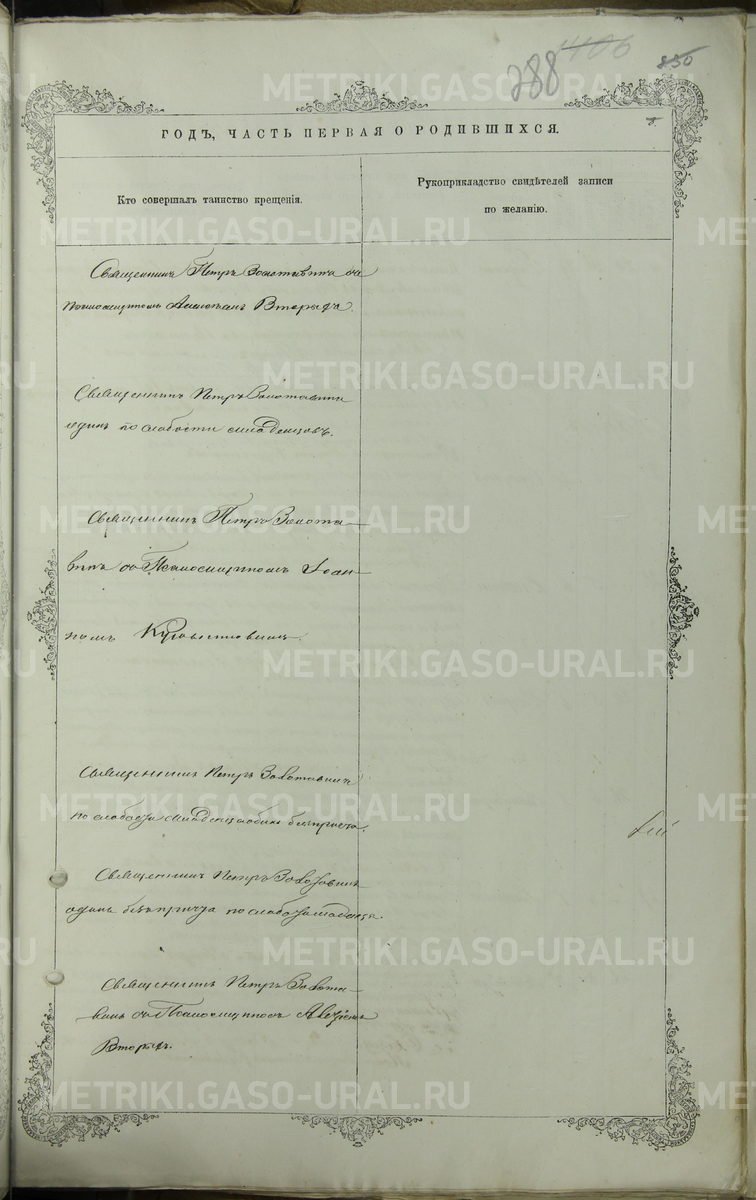 288 406 850
ГОДЪ, ЧАСТЬ ПЕРВАЯ О РОДИВШИХСЯ.
Кто совершалъ таинство крещенія.
Рукоприкладство свидѣтелей записи
по желанію.
Священникъ Петръ Золотавинъ съ
Псаломщикомъ Вторыхъ.
Священникъ Петръ Золотавинъ
одинъ по слабости младенцовъ.
Священникъ Петръ Золота-
винъ съ Псаломщикомъ Іоан-
номъ
Священникъ Петръ Золотавинъ
по слабости младенца одинъ безъ причта.
Священникъ Петръ Золотавинъ
одинъ безъ причта по слабости младенца.
Священникъ Петръ Золота-
винъ съ Псаломщикомъ
Вторыхъ.
METRIKI.GASO-URAL.RU